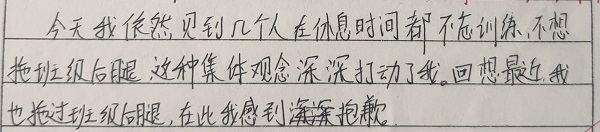 今天我依然见到几个人在休息时间都不忘训练，不想
拖班级后腿，这种集体观念深深打动了我。回想最近，我
也拖过班级后腿，在此我感到深深抱歉